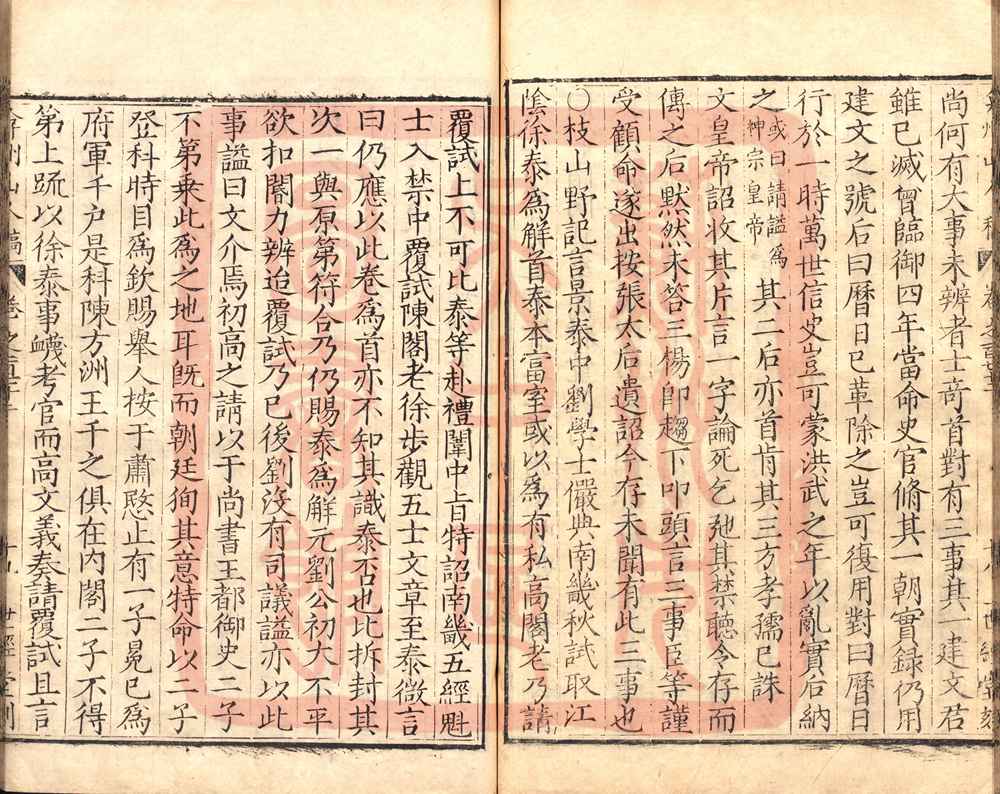 尚何有大事未辨者士奇首對有三事其一建文君
雖已滅曾臨御四年當命史官脩其一朝實録仍用
建文之號后曰曆日已革除之豈可復用對曰曆日
行於一時萬世信史豈可蒙洪武之年以亂實后納
之或曰請謚爲神宗皇帝其二后亦首肯其三方孝孺已誅
文皇帝詔收其片言一字論死乞弛其禁聽令存而
傳之后默然未答三楊卽趨下叩頭言三事臣等謹
受顧命遂出按張太后遺詔今存未聞有此三事也
○枝山野記言景泰中劉學士儼典南畿秋試取江
陰徐泰爲解首泰本富室或以爲有私高閣老乃請
覆試上不可比泰等赴禮闈中旨特詔南畿五經魁
士入禁中覆試陳閣老徐步觀五士文章至泰微言
曰仍應以此卷爲首亦不知其識泰否也比拆封其
次一與原第符合乃仍賜泰爲解元劉公初大不平
欲扣閽力辨追覆試乃已後劉沒有司議謚亦以此
事謚曰文介焉初高之請以于尚書王都御史二子
不第乗此爲之地耳旣而朝廷狥其意特命以二子
登科時目爲欽賜舉人按于肅愍止有一子冕已爲
府軍千户是科陳方洲王千之俱在内閣二子不得
第上䟽以徐泰事衊考官而高文義奏請覆試且言
弇州山人稿
卷之百
十九
世經堂刻